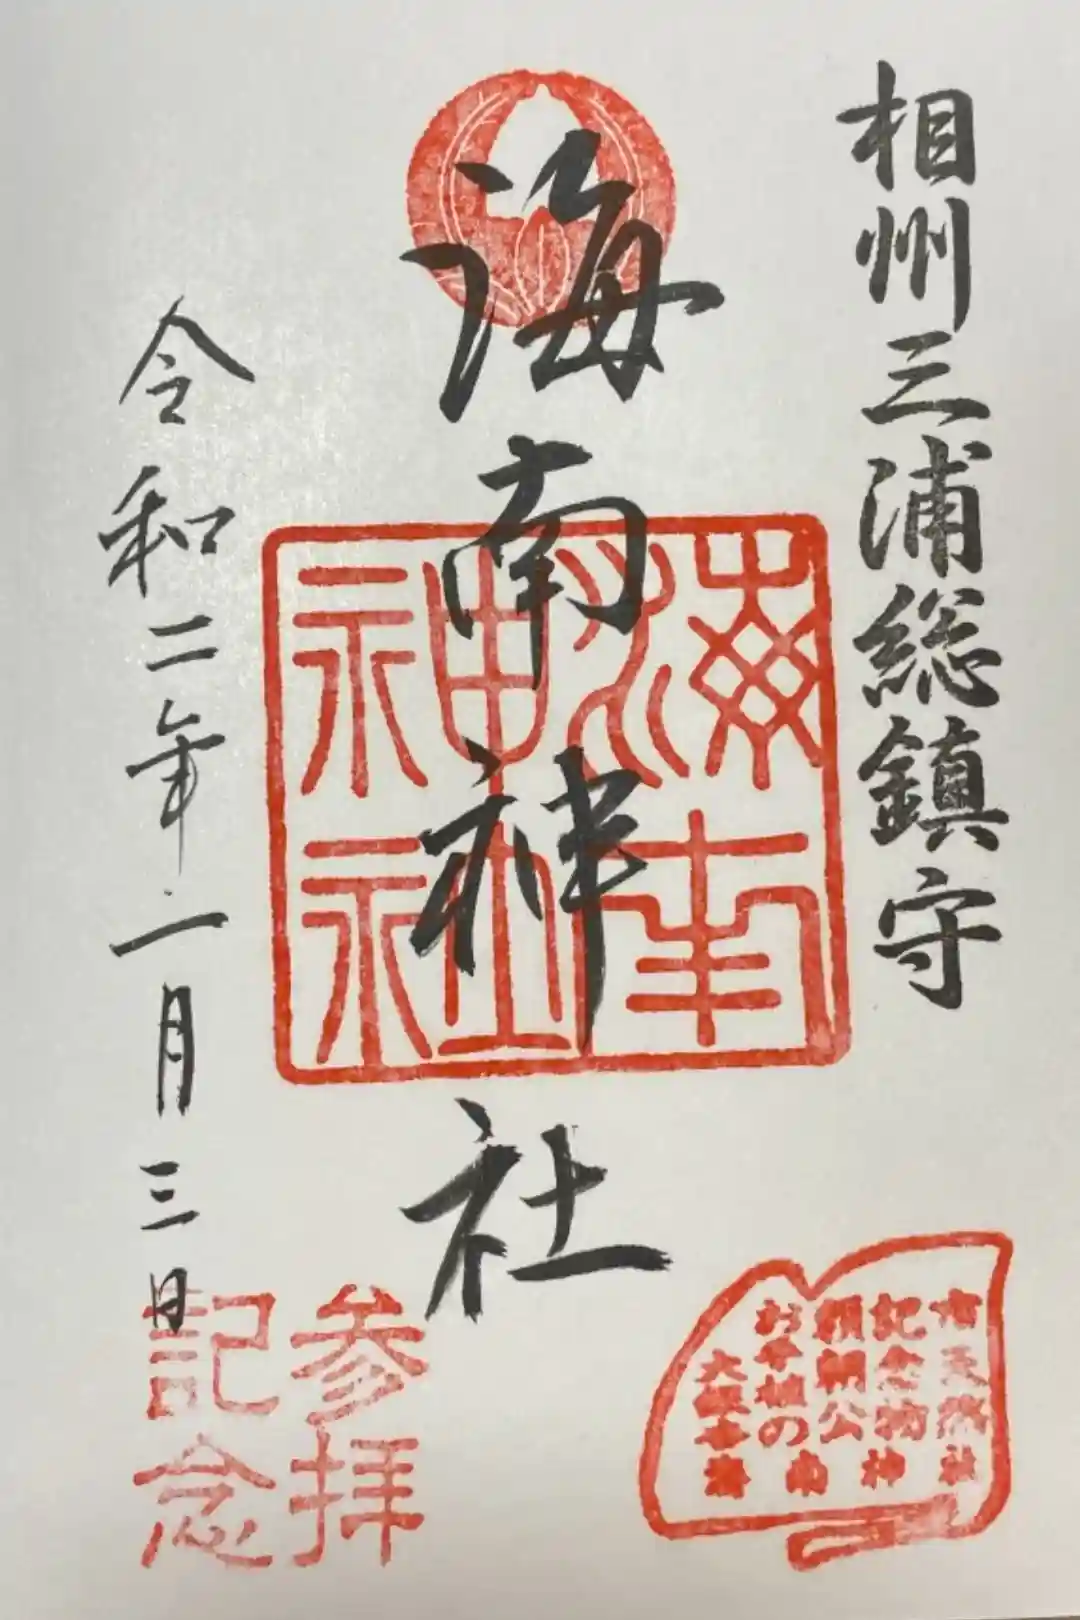 相州三浦総鎮守
海南神社
海南
神社
令和二年二月三日
参拝
記念
市天然
記念物
頼朝公
お手植の
大銀杏
海南神社